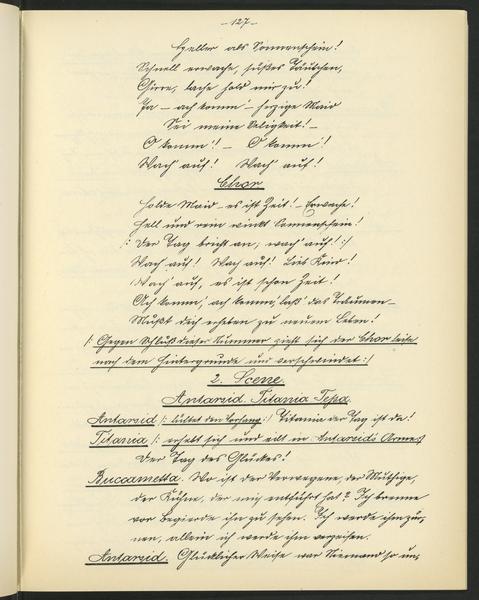 -127-
Heller als Sonnenschein!
Schnell erwache, süßes Täubchen,
Girre, lache hold mir zu!
Ja - ach komm' - herzige Maid
Sei meine Seligkeit! -
O komm'! - O komm'!
Wach' auf! Wach' auf!
Chor
Holde Maid - es ist Zeit! - Erwache!
Hell und rein winkt Sonnenschein!
/: Der Tag bricht an, wach' auf! :/
Wach' auf! Wach' auf! Lieb Kind!
Wach' auf, es ist schon Zeit!
Ach komm', ach komm', laß' das Träumen -
Mußt dich erheben zu neuem Leben!
/: Gegen Schluß dieser Nummer zieht sich der Chor leise
nach dem Hintergrunde und verschwindet :/
2. Scene.
Antarsid Titania Tepa.
Antarsid /: lüftet den Vorhang :/ Titania der Tag ist da!
Titania /: erhebt sich und eilt in Antarsid's Arme :/
Der Tag des Glückes!
Buccametta. Wo ist der Verwegene, der Muthige,
der Kühne, der mich entführt hat? Ich brenne
vor Begierde ihn zu sehen. Ich werde ihm zür,
nen, allein ich werde ihm verzeihen.
Antarsid. Glücklicher Weise war Niemand so un,